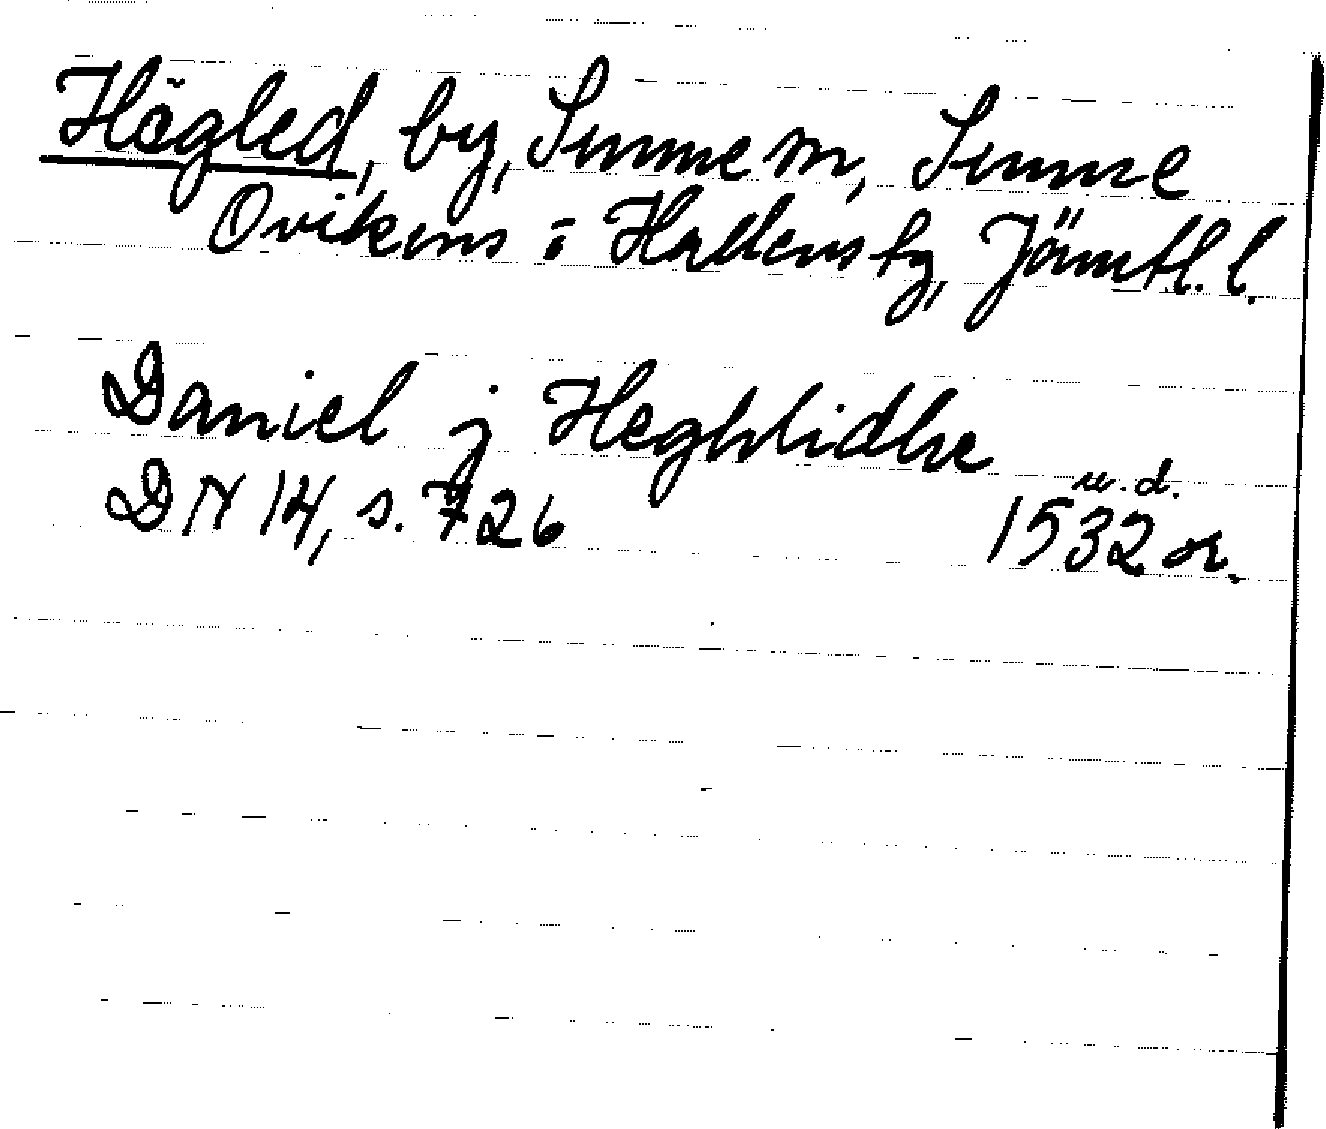 Högled, by, Sunne sn, Sunne
Ovikens o Hallens tg, Jämtl. l.
Daniel j Heghlidhe
u.d.
DN 14, s. 726 1532 or.